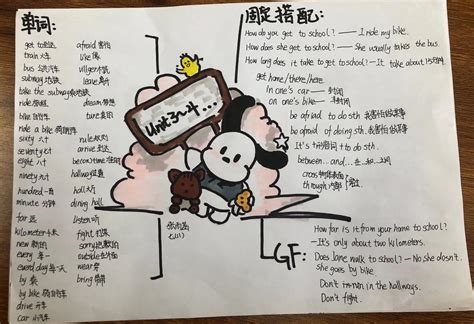 单词:
get to到达
train 火车
bus 公共汽车
subway地铁
take the subway乘地铁
ride 骑
bike
ride a bike 骑自行车
sixty 六十
seventy七十
eighty 八十
ninety 九十
hundred 一百
minute 分钟
far 远
kilometer千米
new 新的
every 每一
every day每一天
by 乘
by bike 骑自行车
drive 开车
car 小汽车
afraid 害怕
like 像
leave 离开
dream 梦想
true 真的
rule 规则
arrive 到达
be(on)time
hallway 走廊
hall 大厅
dining hall
listen 听
fight 打架
sorry
outside 外面
wear 穿
bring 带
Unit 3~4 ...
固定搭配:
How do you get to school? — I ride my bike.
How does she get to school? — She usually takes the bus.
How long does it take to get to school? — It take about 15分钟.
get home/there/here
In one's car =
on one's bike =
be afraid to do sth
be afraid of doing sth.
It's + adj + to do sth.
between...and...在...和...之间
cross
through
GF:
How far is it from your home to school?
— It's only about two kilometers.
Does Jane walk to school? — No she dosn't.
she goes by bike
Don't run in the hallways.
Don't fight.